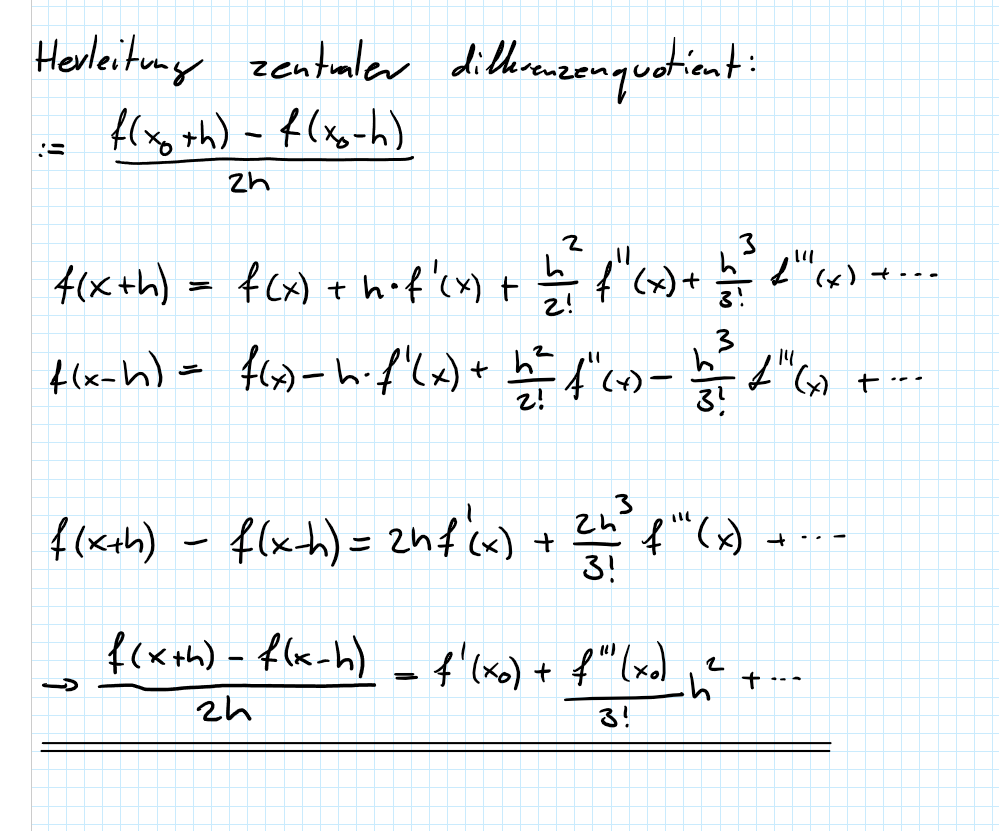 Herleitung zentraler differenzenquotient:
:= (f(x₀+h) - f(x₀-h)) / 2h
f(x+h) = f(x) + h·f'(x) + h²/2! f''(x) + h³/3! f'''(x) + ...
f(x-h) = f(x) - h·f'(x) + h²/2! f''(x) - h³/3! f'''(x) + ...
f(x+h) - f(x-h) = 2hf'(x) + 2h³/3! f'''(x) + ...
→ (f(x+h) - f(x-h)) / 2h = f'(x₀) + f'''(x₀)/3! h² + ...